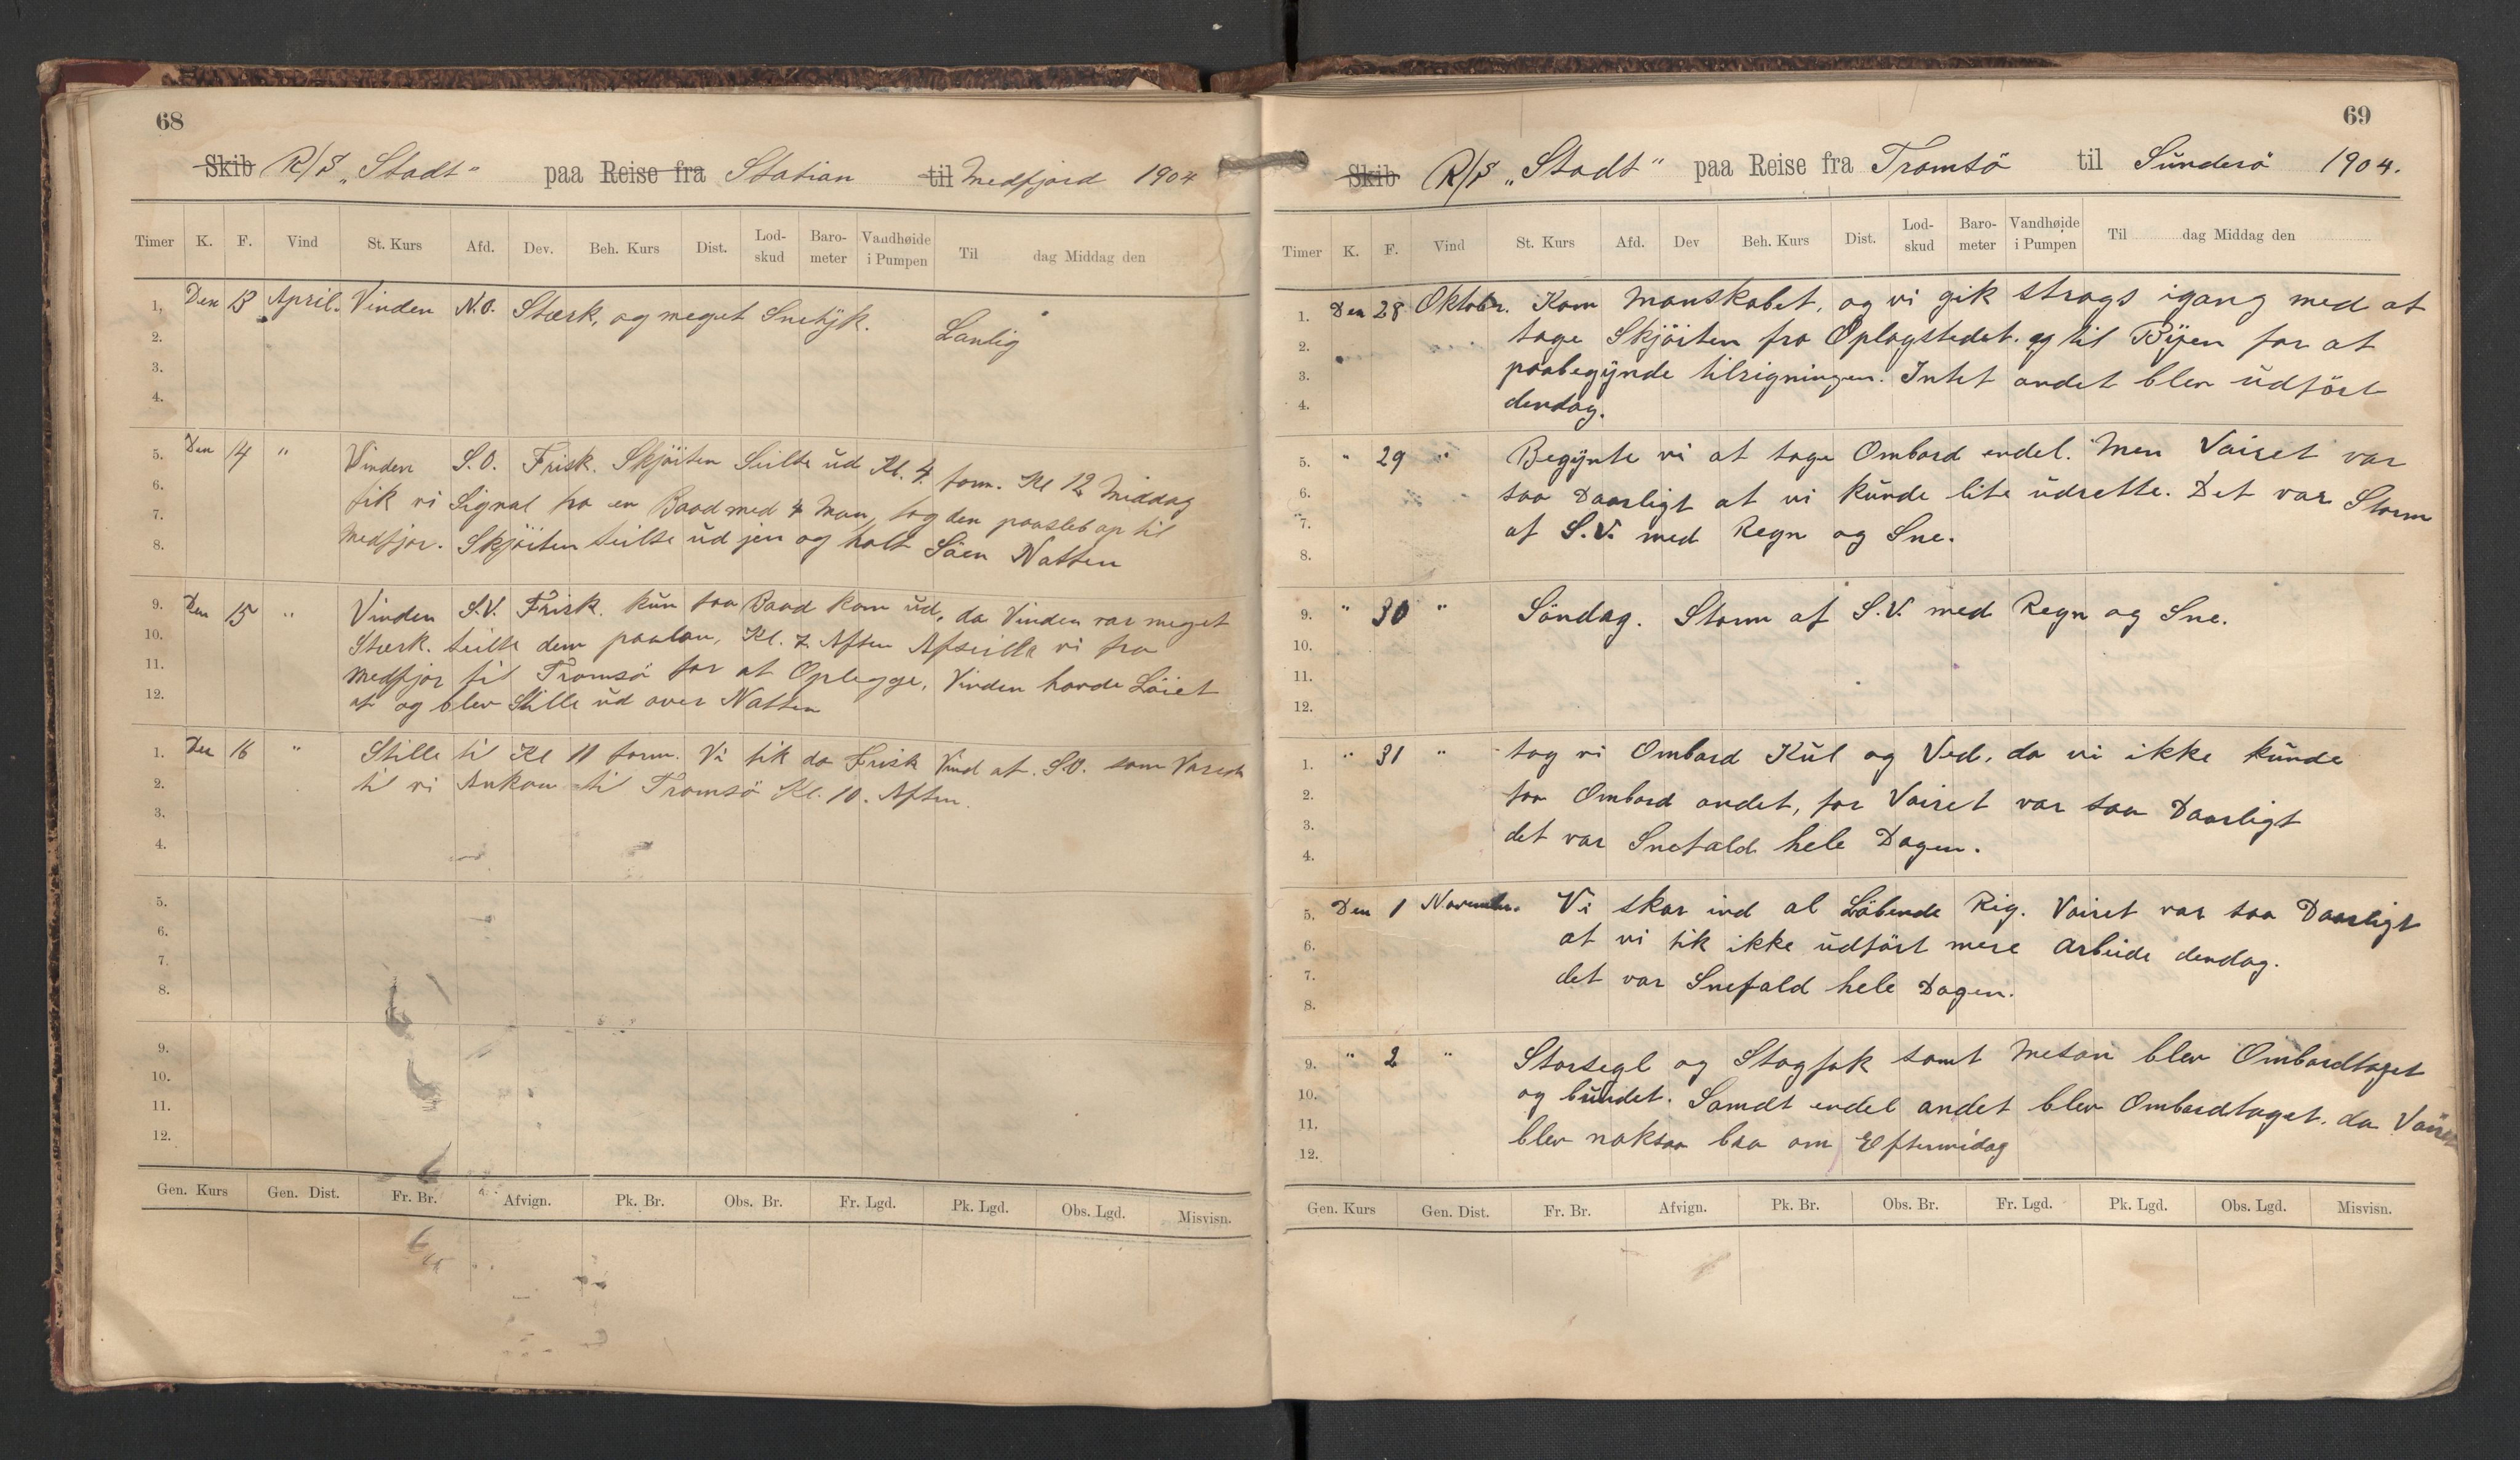 68
Skib R/S „Stadt" paa Reise fra Station til Medfjord 1904
Timer K. F. Vind St. Kurs Afd. Dev. Beh. Kurs Dist. Lod-skud Baro-meter Vandhøide i Pumpen Til dag Middag den
1, Den 13 April. Vinden N.O. Stærk, og meget Snetÿk.
2. Lanlig
3.
4.
5. Den 14 " Vinden S.O. Frisk. Skjöiten Seilte ud Kl. 4. form. Kl 12 Middag
6. fik vi Signal fra en Baad med 4 Man, tog den paasleb op til
7. Medfjor. Skjöiten seilte ud jen og holt Söen Natten
8.
9. Den 15 " Vinden S.V. Frisk. kun faa Baad kom ud, da Vinden var meget
10. Stærk. seilte dem paalan, Kl. 7. Aften Afseilte vi fra
11. Medfjor til Tromsö for at Oplegge, Vinden havde Löiet
12. af og blev Stille ud over Natten
1. Den 16 " Stille til Kl 11 form. Vi fik da Frisk Vind af. S.O. som Varede
2. til vi Ankom til Tromsö Kl. 10. Aften.
3.
4.
5.
6.
7.
8.
9.
10.
11.
12.
Gen. Kurs Gen. Dist. Fr. Br. Afvign. Pk. Br. Obs. Br. Fr. Lgd. Pk. Lgd. Obs. Lgd. Misvisn.
69
Skib R/S „Stadt" paa Reise fra Tromsö til Sunderö 1904.
Timer K. F. Vind St. Kurs Afd. Dev Beh. Kurs Dist. Lod-skud Baro-meter Vandhøide i Pumpen Til dag Middag den
1. Den 28 Oktober. Kom Manskabet, og vi gik strags igang med at
2. tage Skjöiten fra Oplagstedet. og til Bÿen for at
3. paabegÿnde tilrigningen. Intet andet blev udfört
4. dendag.
5. " 29 " Begÿnte vi at tage Ombord endel. Men Vairet var
6. saa Daarligt at vi kunde lite udrette. Det var Storm
7. af S.V. med Regn og Sne.
8.
9. " 30 " Söndag. Storm af S.V. med Regn og Sne.
10.
11.
12.
1. " 31 " tog vi Ombord Kul og Ved, da vi ikke kunde
2. faa Ombord andet, for Vairet var saa Daarligt
3. det var Snefald hele Dagen.
4.
5. Den 1 November. Vi skar ind al Löbende Rig. Vairet var saa Daarligt
6. at vi fik ikke udfört mere Arbeide dendag.
7. det var Snefald hele Dagen.
8.
9. " 2 " Storsegl og Stagfok samt Mesan blev Ombordtaget
10. og bundet. Samdt endel andet blev Ombordtaget. da Vairet
11. blev noksaa bra om Eftermidag
12.
Gen. Kurs Gen. Dist. Fr. Br. Afvign. Pk. Br. Obs. Br. Fr. Lgd. Pk. Lgd. Obs. Lgd. Misvisn.